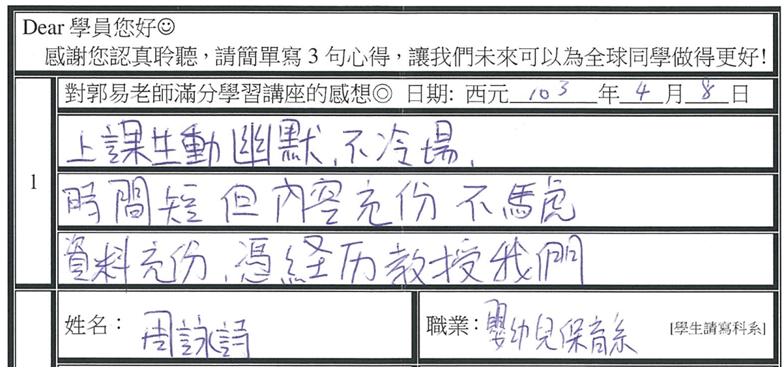 Dear 學員您好☺
感謝您認真聆聽，請簡單寫 3 句心得，讓我們未來可以為全球同學做得更好!
對郭易老師滿分學習講座的感想◎ 日期: 西元 103 年 4 月 8 日
1
上課生動幽默、不冷場、
時間短但內容充份不馬虎
資料充份、憑経历教授我們
姓名： 周詠詩
職業： 嬰幼兒保育系 [學生請寫科系]